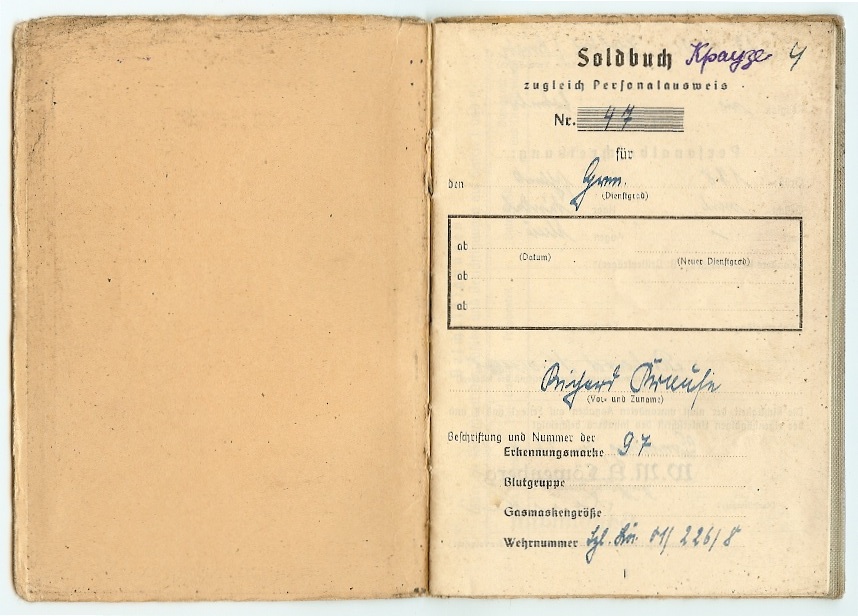 Soldbuch Краузе 4
zugleich Personalausweis
Nr. 47
für
den Gren.
(Dienstgrad)
ab
(Datum) (Neuer Dienstgrad)
ab
ab
Richard Krause
(Vor- und Zuname)
Beschriftung und Nummer der
Erkennungsmarke 97
Blutgruppe
Gasmaskengröße
Wehrnummer 01/226/8
1